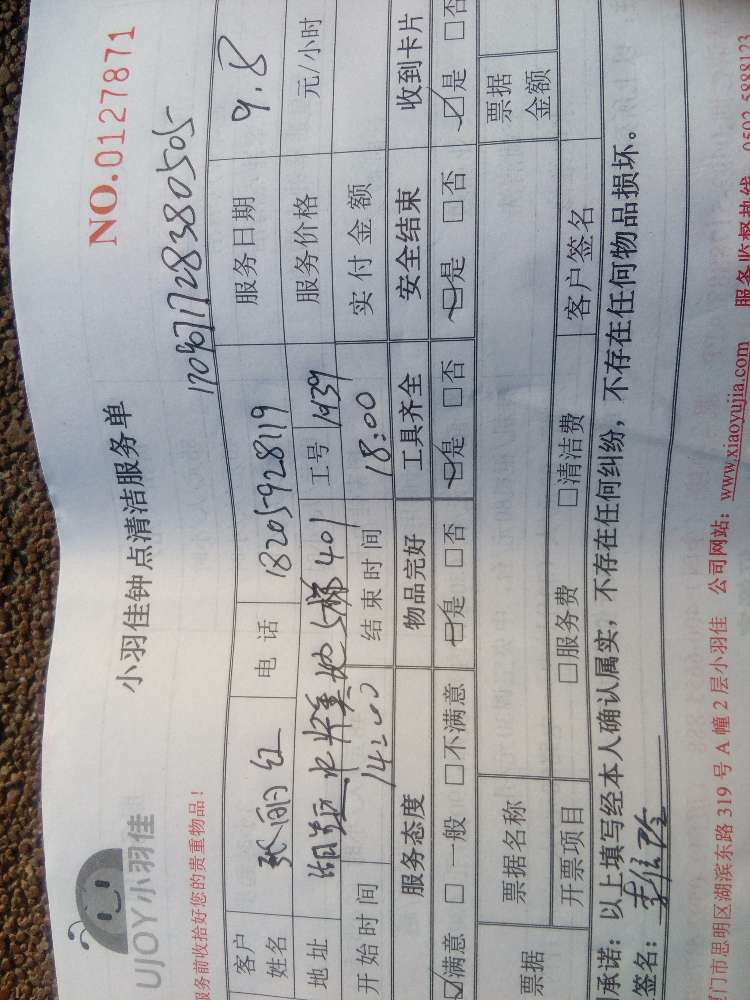 UJOY小羽佳
小羽佳钟点清洁服务单
NO.0127871
服务前收拾好您的贵重物品！
客户姓名 张丽红 电话 18205928119 服务日期 9.8
地址 401 工号 1939 服务价格 元/小时
开始时间 14:00 结束时间 18:00 实付金额
服务态度 物品完好 工具齐全 安全结束 收到卡片
☑满意 □一般 □不满意 ☑是 □否 ☑是 □否 ☑是 □否 ☑是 □否
票据 票据名称 票据金额
开票项目 □服务费 □清洁费 客户签名
承诺：以上填写经本人确认属实，不存在任何纠纷，不存在任何物品损坏。
签名：
门市思明区湖滨东路 319 号 A 幢 2 层小羽佳 公司网站：www.xiaoyujia.com 服务监督热线 0592-5888123